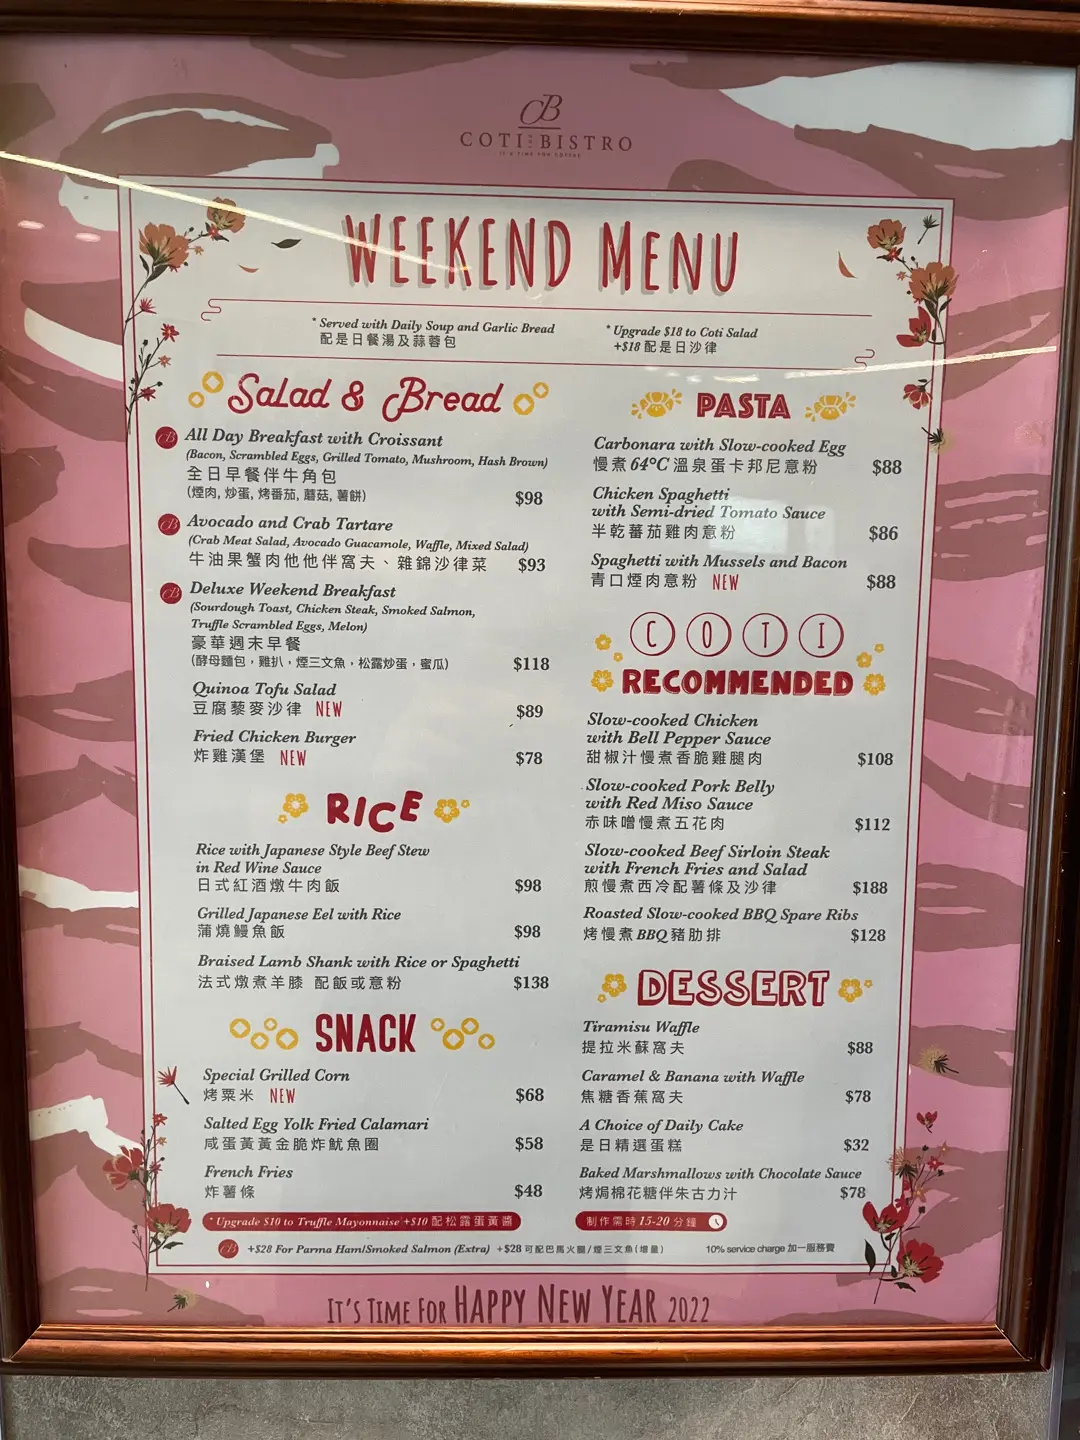 CB
COTI BISTRO
IT'S TIME FOR COFFEE
WEEKEND MENU
* Served with Daily Soup and Garlic Bread
配是日餐湯及蒜蓉包
* Upgrade $18 to Coti Salad
+$18 配是日沙律
Salad & Bread
CB All Day Breakfast with Croissant
(Bacon, Scrambled Eggs, Grilled Tomato, Mushroom, Hash Brown)
全日早餐伴牛角包
(煙肉, 炒蛋, 烤番茄, 蘑菇, 薯餅) $98
CB Avocado and Crab Tartare
(Crab Meat Salad, Avocado Guacamole, Waffle, Mixed Salad)
牛油果蟹肉他他伴窩夫、雜錦沙律菜 $93
CB Deluxe Weekend Breakfast
(Sourdough Toast, Chicken Steak, Smoked Salmon,
Truffle Scrambled Eggs, Melon)
豪華週末早餐
(酵母麵包，雞扒，煙三文魚，松露炒蛋，蜜瓜) $118
Quinoa Tofu Salad
豆腐藜麥沙律 NEW $89
Fried Chicken Burger
炸雞漢堡 NEW $78
RICE
Rice with Japanese Style Beef Stew
in Red Wine Sauce
日式紅酒燉牛肉飯 $98
Grilled Japanese Eel with Rice
蒲燒鰻魚飯 $98
Braised Lamb Shank with Rice or Spaghetti
法式燉煮羊膝 配飯或意粉 $138
SNACK
Special Grilled Corn
烤粟米 NEW $68
Salted Egg Yolk Fried Calamari
咸蛋黃黃金脆炸魷魚圈 $58
French Fries
炸薯條 $48
* Upgrade $10 to Truffle Mayonnaise +$10 配松露蛋黃醬
PASTA
Carbonara with Slow-cooked Egg
慢煮64°C溫泉蛋卡邦尼意粉 $88
Chicken Spaghetti
with Semi-dried Tomato Sauce
半乾蕃茄雞肉意粉 $86
Spaghetti with Mussels and Bacon
青口煙肉意粉 NEW $88
COTI
RECOMMENDED
Slow-cooked Chicken
with Bell Pepper Sauce
甜椒汁慢煮香脆雞腿肉 $108
Slow-cooked Pork Belly
with Red Miso Sauce
赤味噌慢煮五花肉 $112
Slow-cooked Beef Sirloin Steak
with French Fries and Salad
煎慢煮西冷配薯條及沙律 $188
Roasted Slow-cooked BBQ Spare Ribs
烤慢煮BBQ豬肋排 $128
DESSERT
Tiramisu Waffle
提拉米蘇窩夫 $88
Caramel & Banana with Waffle
焦糖香蕉窩夫 $78
A Choice of Daily Cake
是日精選蛋糕 $32
Baked Marshmallows with Chocolate Sauce
烤焗棉花糖伴朱古力汁 $78
制作需時 15-20 分鐘
CB +$28 For Parma Ham/Smoked Salmon (Extra) +$28 可配巴馬火腿/煙三文魚(增量)
10% service charge 加一服務費
IT'S TIME FOR HAPPY NEW YEAR 2022